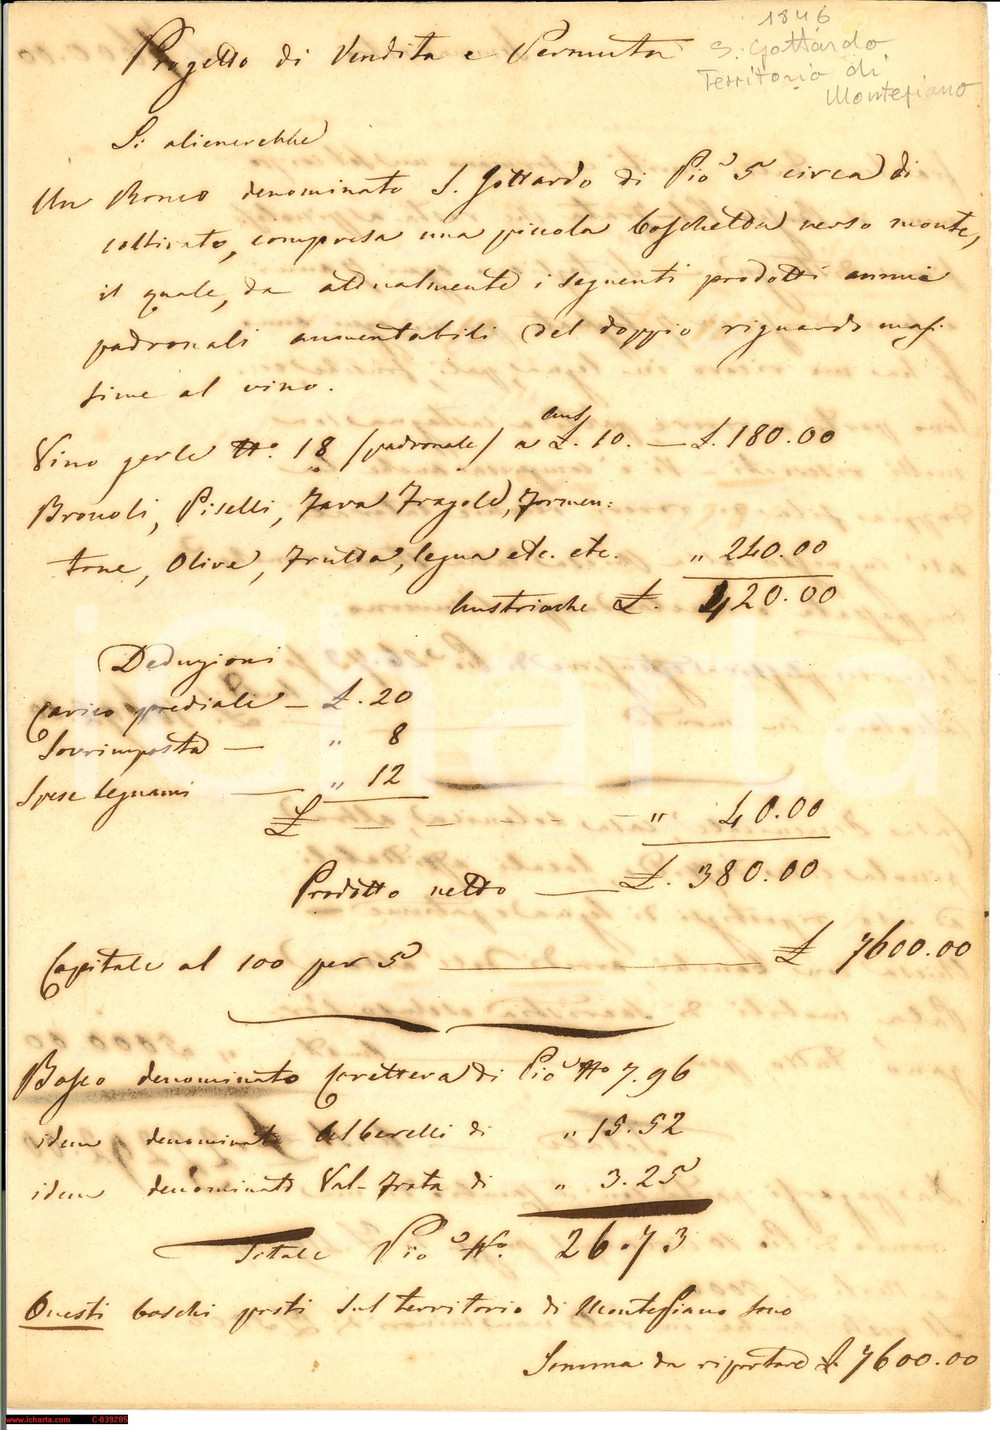 1846
S. Gottardo
Territorio di
Montefiano
Progetto di Vendita e Permuta
Si alienerebbe
Un Ronco denominato S. Gottardo di Piò 5 circa di
coltivato, compresa una piccola boschetta verso monte,
il quale, da attualmente i seguenti prodotti annui
padronali aumentabili del doppio riguardo mas-
sime al vino.
Vino gerle N.o 18 /padronale/ a aust. £. 10. — £. 180.00
Brocoli, Piselli, Fava Fragole, Formen:
tone, Olive, Frutta, legna etc. etc. " 240.00
Austriache £. 420.00
Deduzioni
Carico prediale — £. 20
Sovrimposta — " 8
Spese legnami — " 12
£ — — — " 40.00
Prodotto netto — £. 380.00
Capitale al 100 per 5 — £ 7600.00
Bosco denominato Corettera di Piò N.o 7.96
idem denominato Alberelli di " 15.52
idem denominato Val-Frata di " 3.25
Totale Piò N.o 26.73
Questi boschi posti sul territorio di Montefiano sono
Somma da riportare £. 7600.00
www.icharta.com C-039205